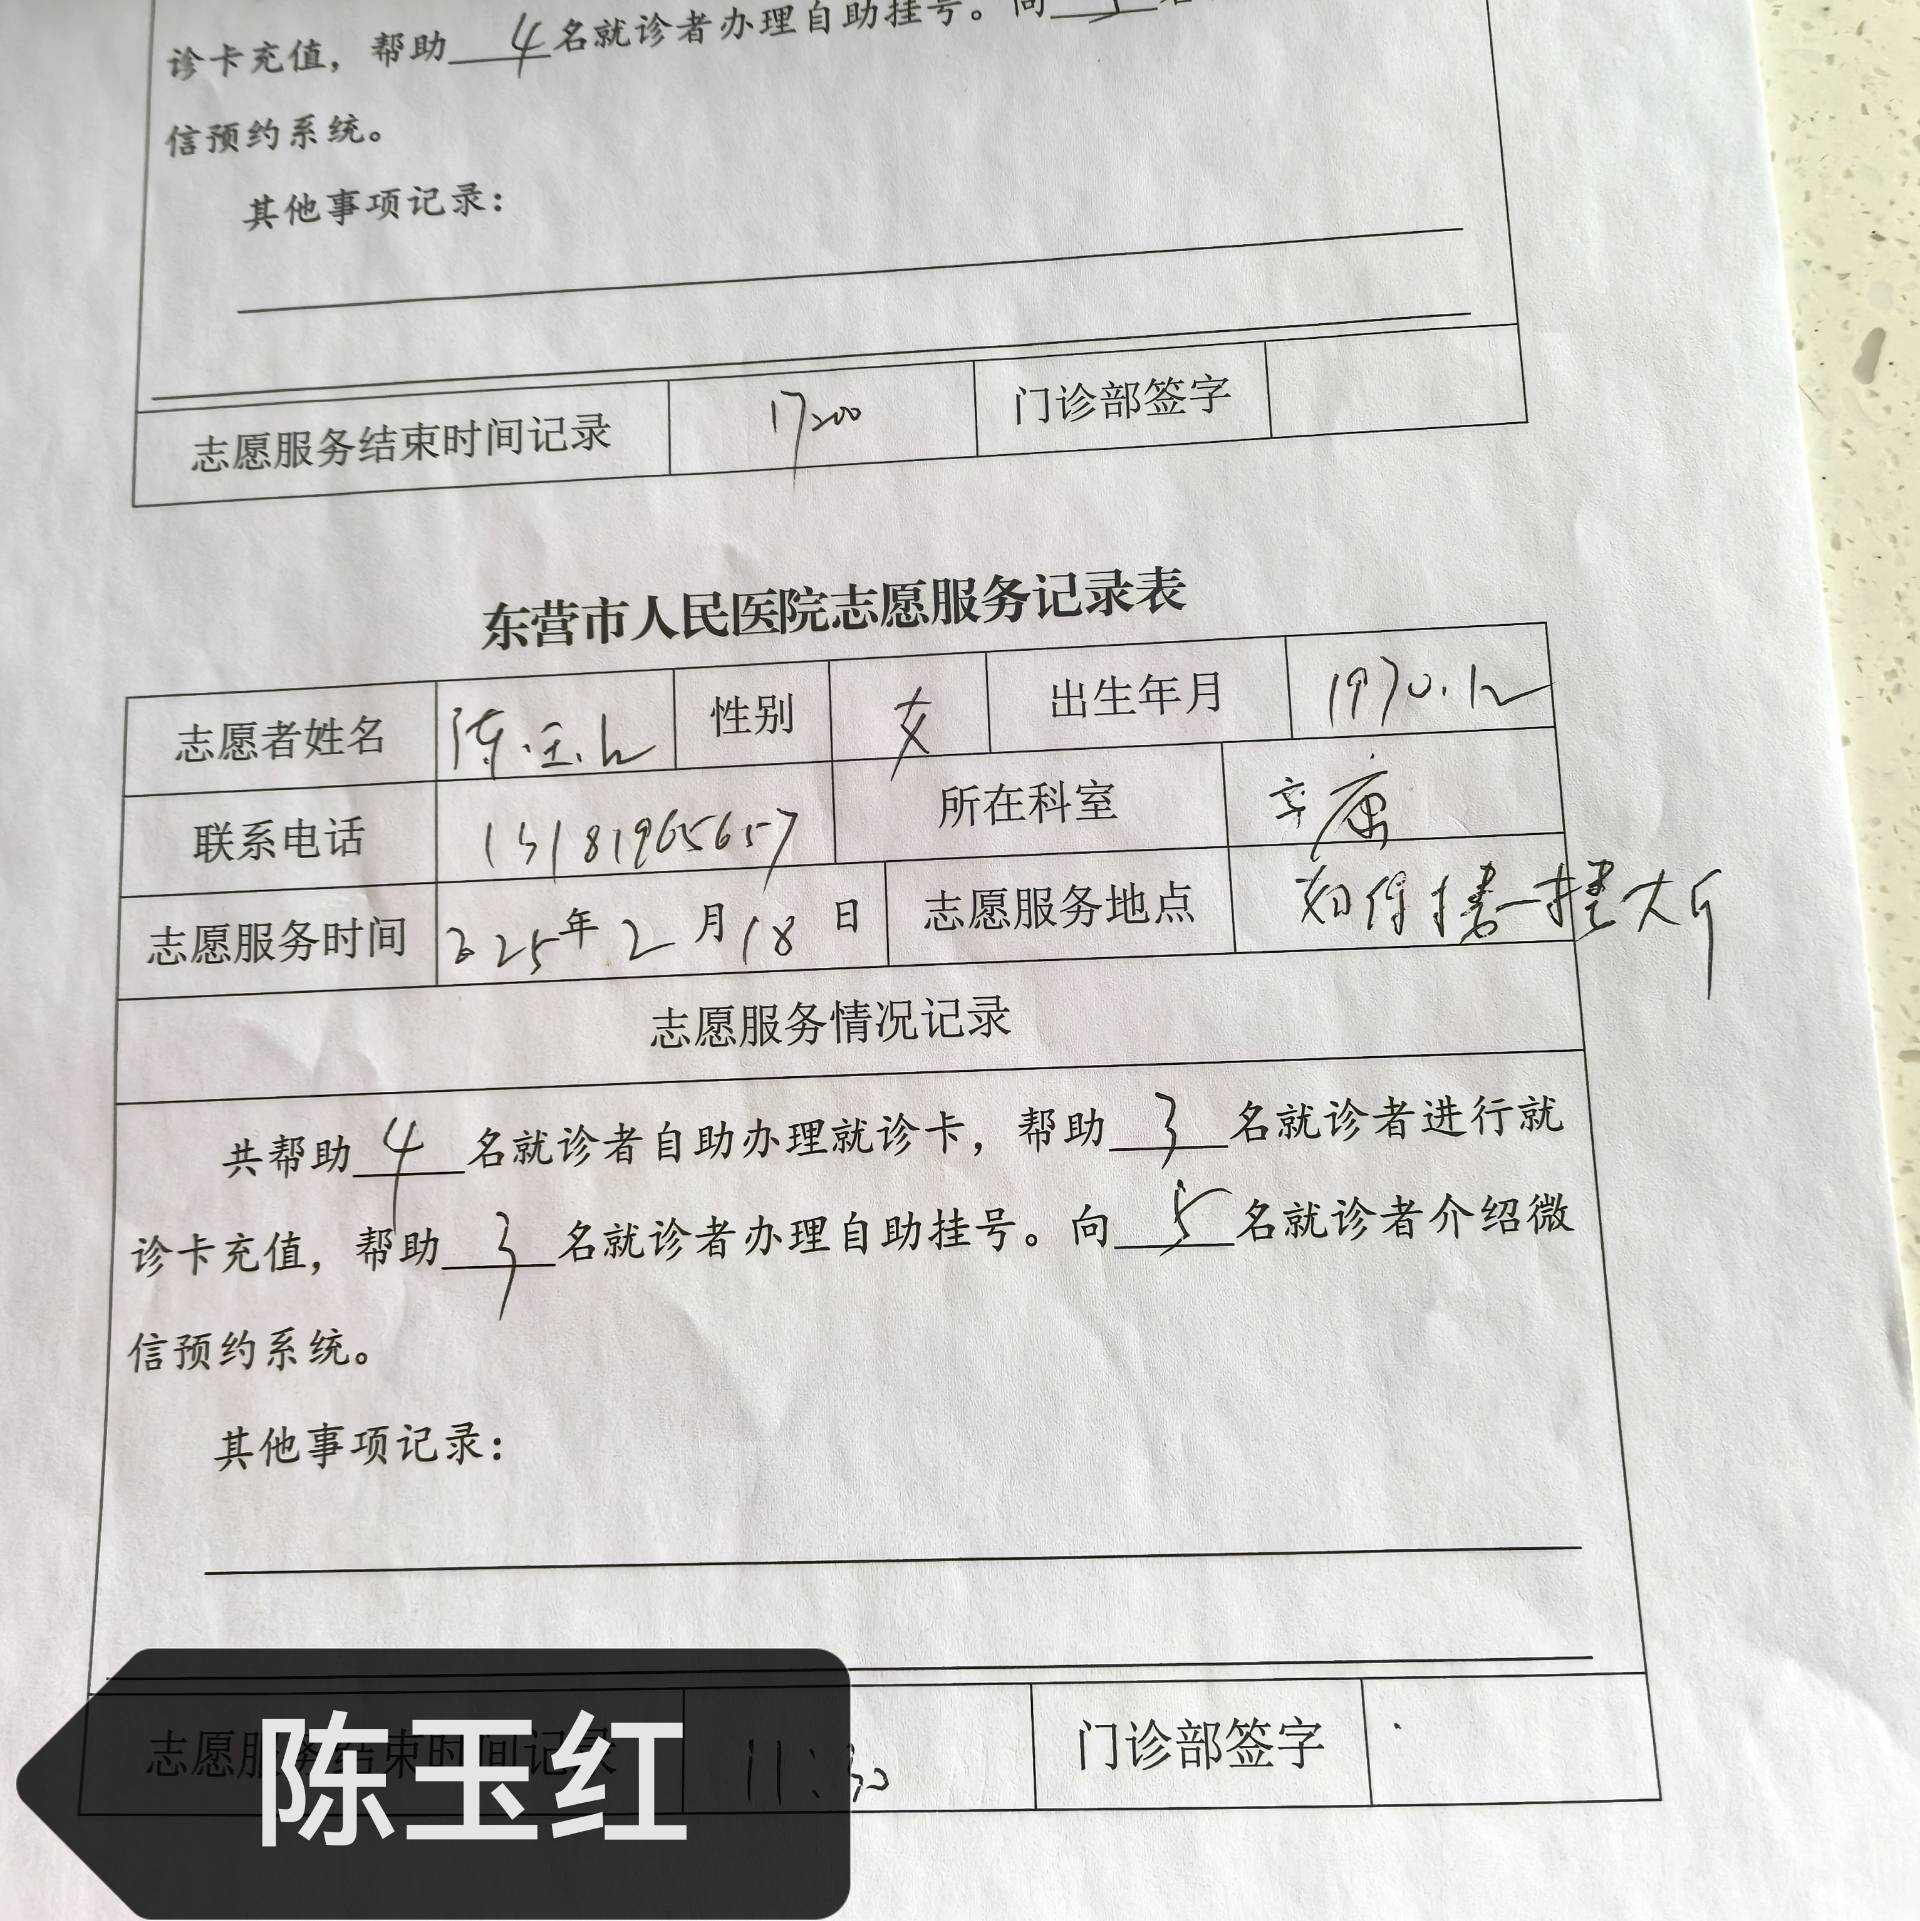 诊卡充值，帮助 4 名就诊者办理自助挂号。向
信预约系统。
其他事项记录：
志愿服务结束时间记录 17:00 门诊部签字
东营市人民医院志愿服务记录表
志愿者姓名 陈玉红 性别 女 出生年月 1970.12
联系电话 13181965657 所在科室
志愿服务时间 2025年 2 月 18 日 志愿服务地点 妇保楼一楼大厅
志愿服务情况记录
共帮助 4 名就诊者自助办理就诊卡，帮助 3 名就诊者进行就
诊卡充值，帮助 3 名就诊者办理自助挂号。向 5 名就诊者介绍微
信预约系统。
其他事项记录：
志愿服务结束时间记录 11:30 门诊部签字
陈玉红